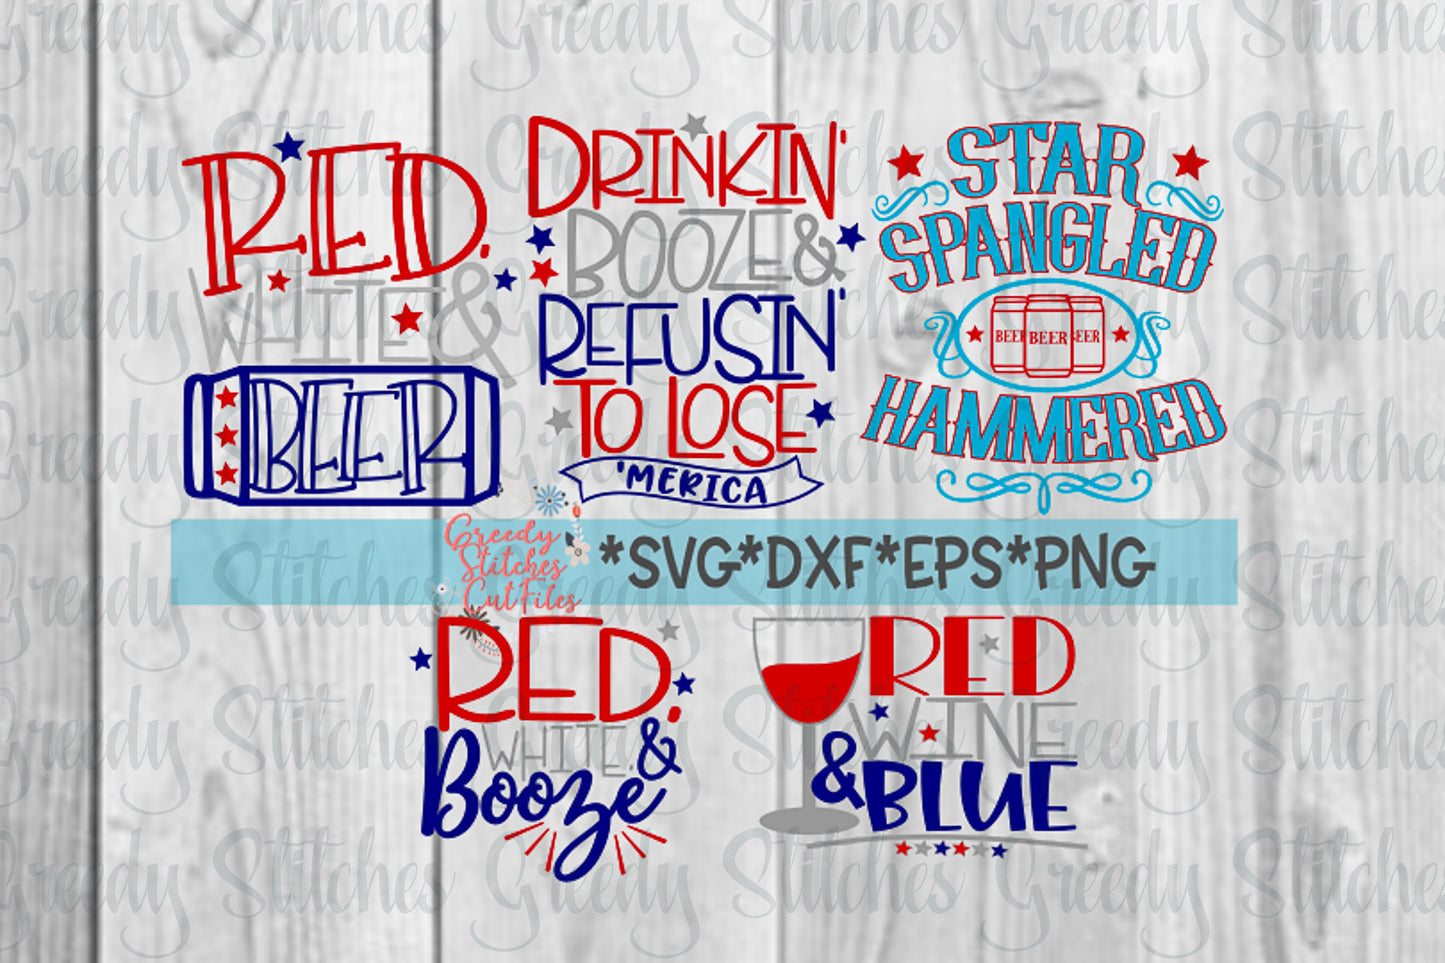 RED,
WHITE &
BEER
DRINKIN'
BOOZE &
REFUSIN'
TO LOSE
'MERICA
STAR
SPANGLED
BEER BEER BEER
HAMMERED
Greedy
Stitches
CutFiles
*SVG*DXF*EPS*PNG
RED,
WHITE, &
Booze
RED
WINE
& BLUE
Greedy Stitches